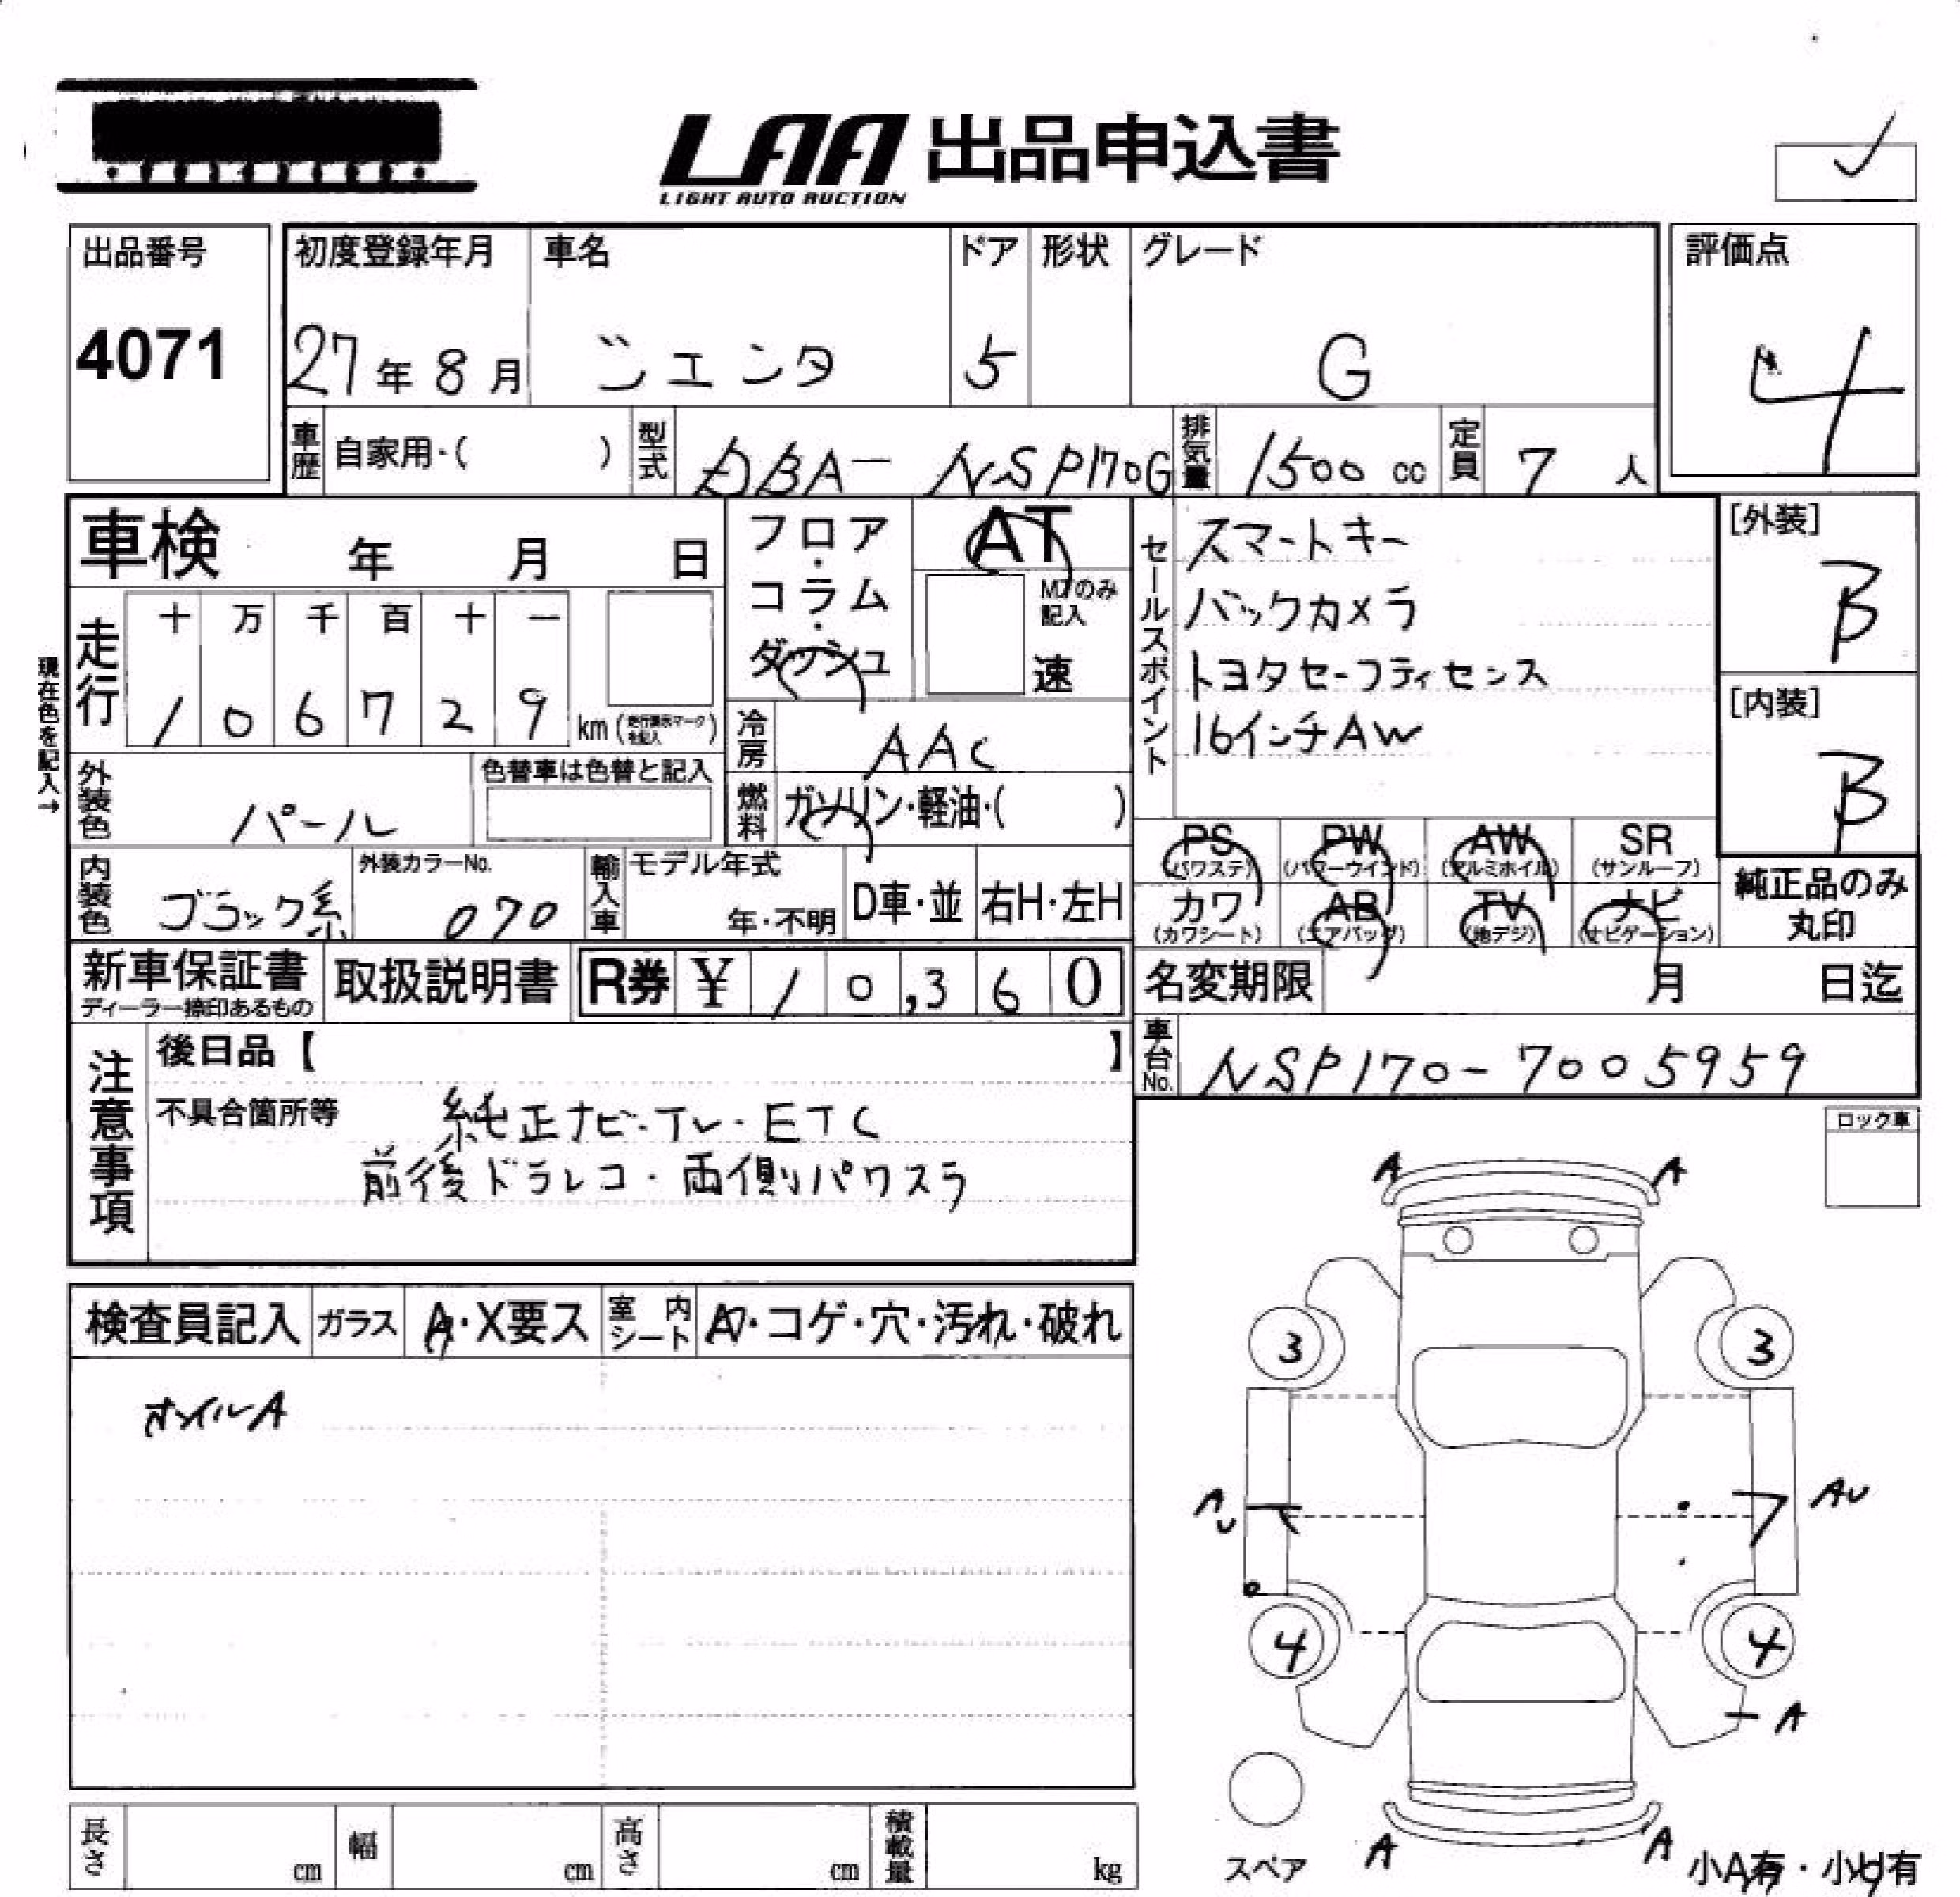 LAA 出品申込書
LIGHT AUTO AUCTION
出品番号 初度登録年月 車名 ドア 形状 グレード 評価点
4071 27年8月 ジエンタ 5 G 4
車歴 自家用・( ) 型式 DBA- NSP170G 排気量 1500cc 定員 7人
車検 年 月 日 フロア・コラム・ダッシュ AT
MTのみ記入 速
セールスポイント
スマートキー
バックカメラ
トヨタセーフティセンス
16インチAW
[外装]
B
[内装]
B
現在色を記入→
走行 十 万 千 百 十 一
1 0 6 7 2 9 km (走行表示マークを記入)
冷房 AAC
外装色 パール 色替車は色替と記入
燃料 ガソリン・軽油・( )
PS (パワステ) PW (パワーウインド) AW (アルミホイル) SR (サンルーフ)
内装色 ブラック系 外装カラーNo. 070 輸入車 モデル年式 年・不明 D車・並 右H・左H
カワ (カワシート) AB (エアバッグ) TV (地デジ) ナビ (ナビゲーション)
純正品のみ丸印
新車保証書 ディーラー捺印あるもの 取扱説明書 R券 ¥ 10,360 名変期限 月 日迄
車台No. NSP170-7005959
注意事項
後日品【 】
不具合箇所等 純正ナビ・TV・ETC
前後ドラレコ・両側パワスラ
ロック車
A A
検査員記入 ガラス A・X要ス 室内シート ・コゲ・穴・汚れ・破れ
オイルA
3 3
AU AU
4 4
A
スペア
A A
小A有・小U有
長さ cm 幅 cm 高さ cm 積載量 kg